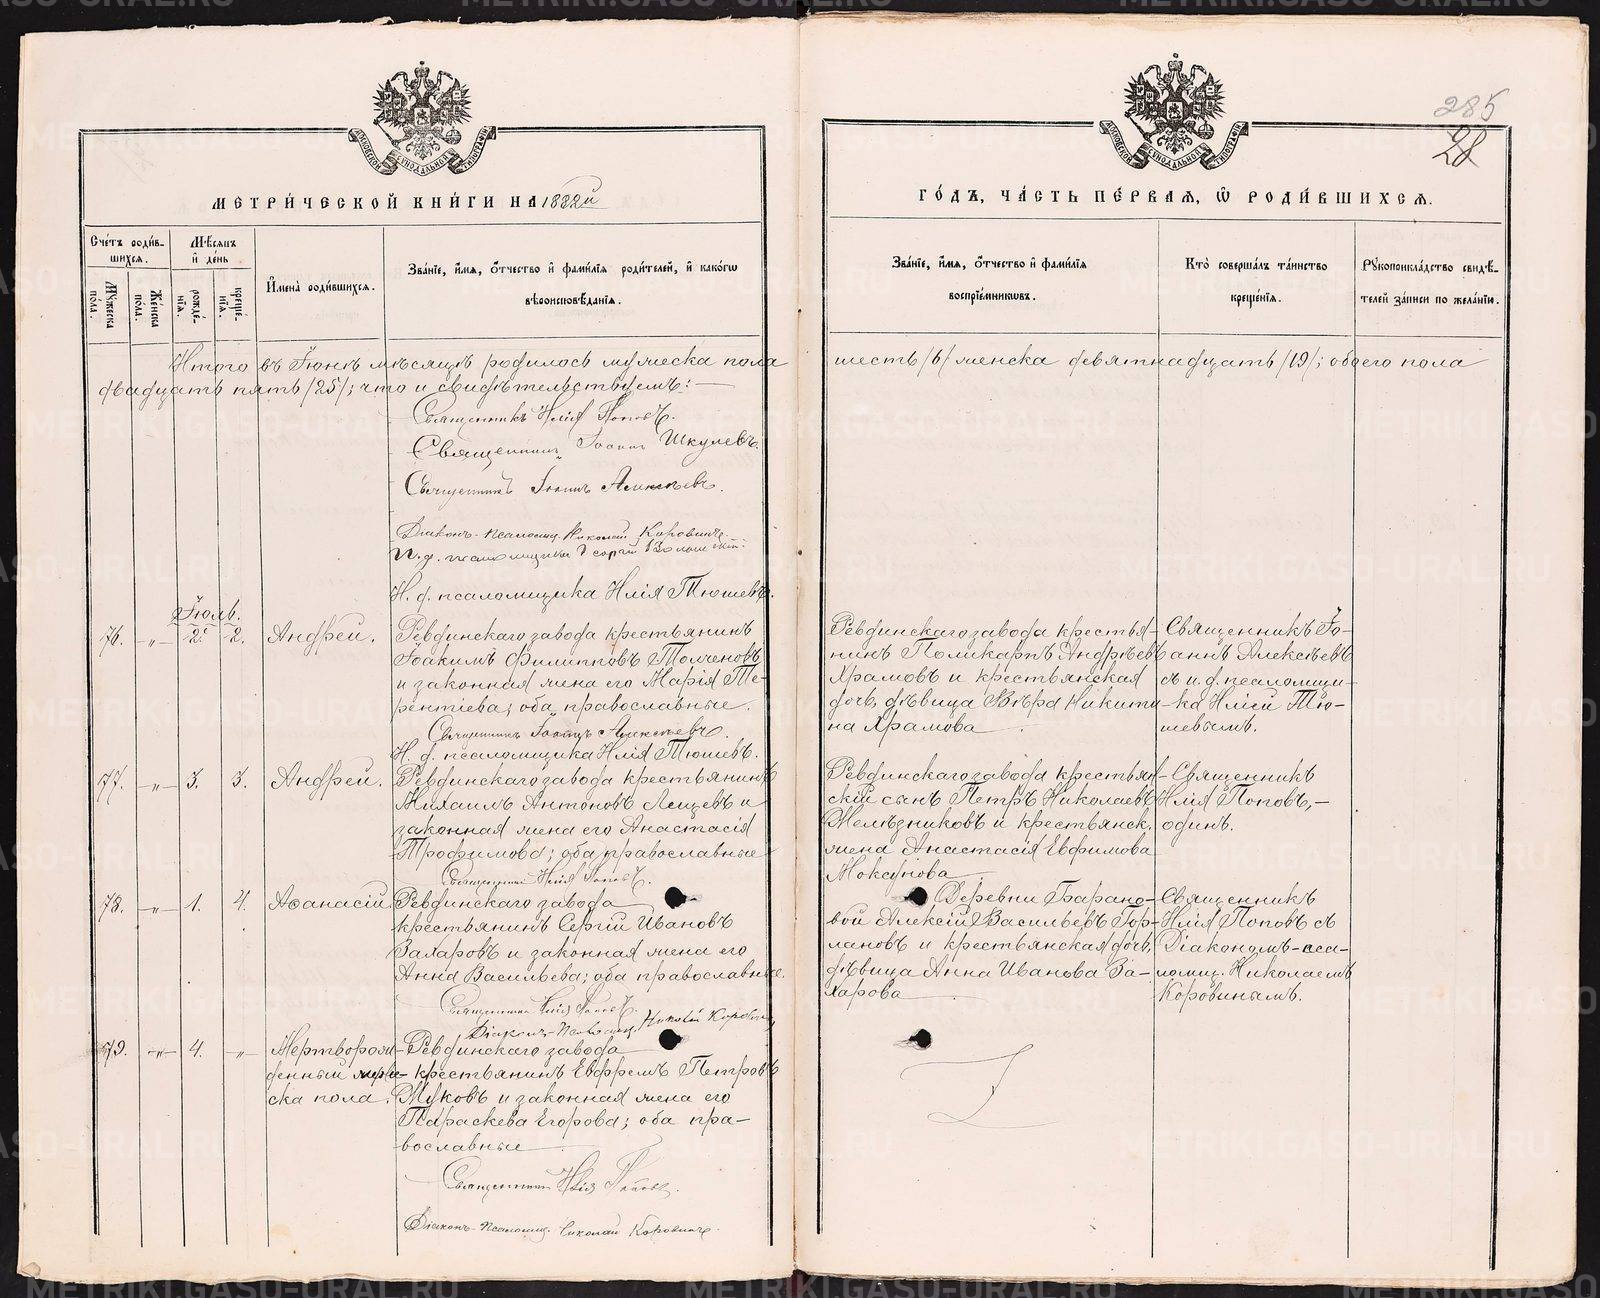 285
28
МЕТРИ́ЧЕСКОЙ КНИ́ГИ НА 1882й
ГО́ДЪ, ЧА́СТЬ ПЕ́РВАЯ, Ѡ РОДИ́ВШИХСЯ.
Сче́тъ роди́в-
шихся.
Мꙋ́жеска пола.
Же́нска пола.
Мѣ́сяцъ
и де́нь
рожде́-
нїя.
креще́-
нїя.
Имена̀ роди́вшихся.
Зва́нїе, и́мя, о́тчество и фами́лїя роди́телей, и како́гѡ
вѣроисповѣ́данїя.
Зва́нїе, и́мя, о́тчество и фами́лїя
воспрїе́мникѡвъ.
Кто̀ соверша́лъ та́инство
креще́нїя.
Рꙋкоприкла́дство свидѣ́-
телей за́писи по жела́нїю.
Итого въ Іюнѣ мѣсяцѣ родилось мужеска пола шесть /6/ женска девятнадцать /19/; обоего пола
двадцать пять /25/; что и свидѣтельствуемъ: —
Священникъ Илія Поповъ.
Священникъ Іоаннъ Шкулевъ.
Священникъ Іоаннъ Алексѣевъ.
Діаконъ-псаломщ. Николай Коровинъ.
И. д. псаломщика Георгій
И. д. псаломщика Илія Тюшевъ.
Іюль.
76. -„- 2. 2. Андрей.
Ревдинскаго завода крестьянинъ
Іоакимъ Филипповъ Толченовъ
и законная жена его Марія Те-
рентіева; оба православные.
Священникъ Іоаннъ Алексѣевъ.
И. д. псаломщика Илія Тюшевъ.
Ревдинскаго завода крестья-
нинъ Поликарпъ Андрѣевъ
Храмовъ и крестьянская
дочь, дѣвица Вѣра Никити-
на Храмова.
Священникъ Іо-
аннъ Алексѣевъ
съ и. д. псаломщи-
ка Иліей Тю-
шевымъ.
77. -„- 3. 3. Андрей.
Ревдинскаго завода крестьянинъ
Михаилъ Антоновъ Лещевъ и
законная жена его Анастасія
Трофимова; оба православные
Священникъ Илія Поповъ.
Ревдинскаго завода крестьян-
скій сынъ Петръ Николаевъ
Желѣзниковъ и крестьянск.
жена Анастасія Евфимова
Мокрунова
Священникъ
Илія Поповъ, —
одинъ.
78. -„- 1. 4. Аѳанасій
Ревдинскаго завода
крестьянинъ Сергій Ивановъ
Захаровъ и законная жена его
Анна Васильева; оба православные.
Священникъ Илія Поповъ.
Діаконъ-Псаломщ. Николай Коровинъ
Деревни Барано-
вой Алексій Васильевъ Гор-
лановъ и крестьянская дочь,
дѣвица Анна Иванова За-
харова
Священникъ
Илія Поповъ съ
Діакономъ-пса-
ломщ. Николаемъ
Коровинымъ.
79. -„- 4. -„-
Мертворож-
денный муже-
ска пола.
Ревдинскаго завода
крестьянинъ Евфремъ Петровъ
Жуковъ и законная жена его
Параскева Егорова; оба пра-
вославные
Священникъ Илія Поповъ.
Діаконъ-Псаломщ. Николай Коровинъ.